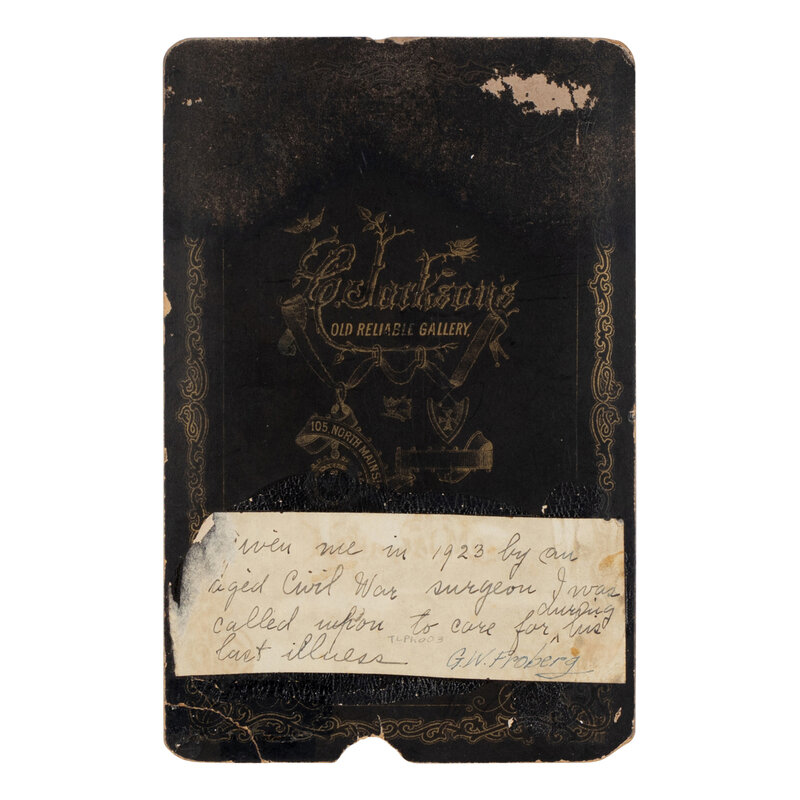 C. E. Jackson's
OLD RELIABLE GALLERY
105 NORTH MAIN S
iven me in 1923 by an
aged Civil War surgeon I was
called upon to care for during his
TLPh003
last illness G.W. Froberg